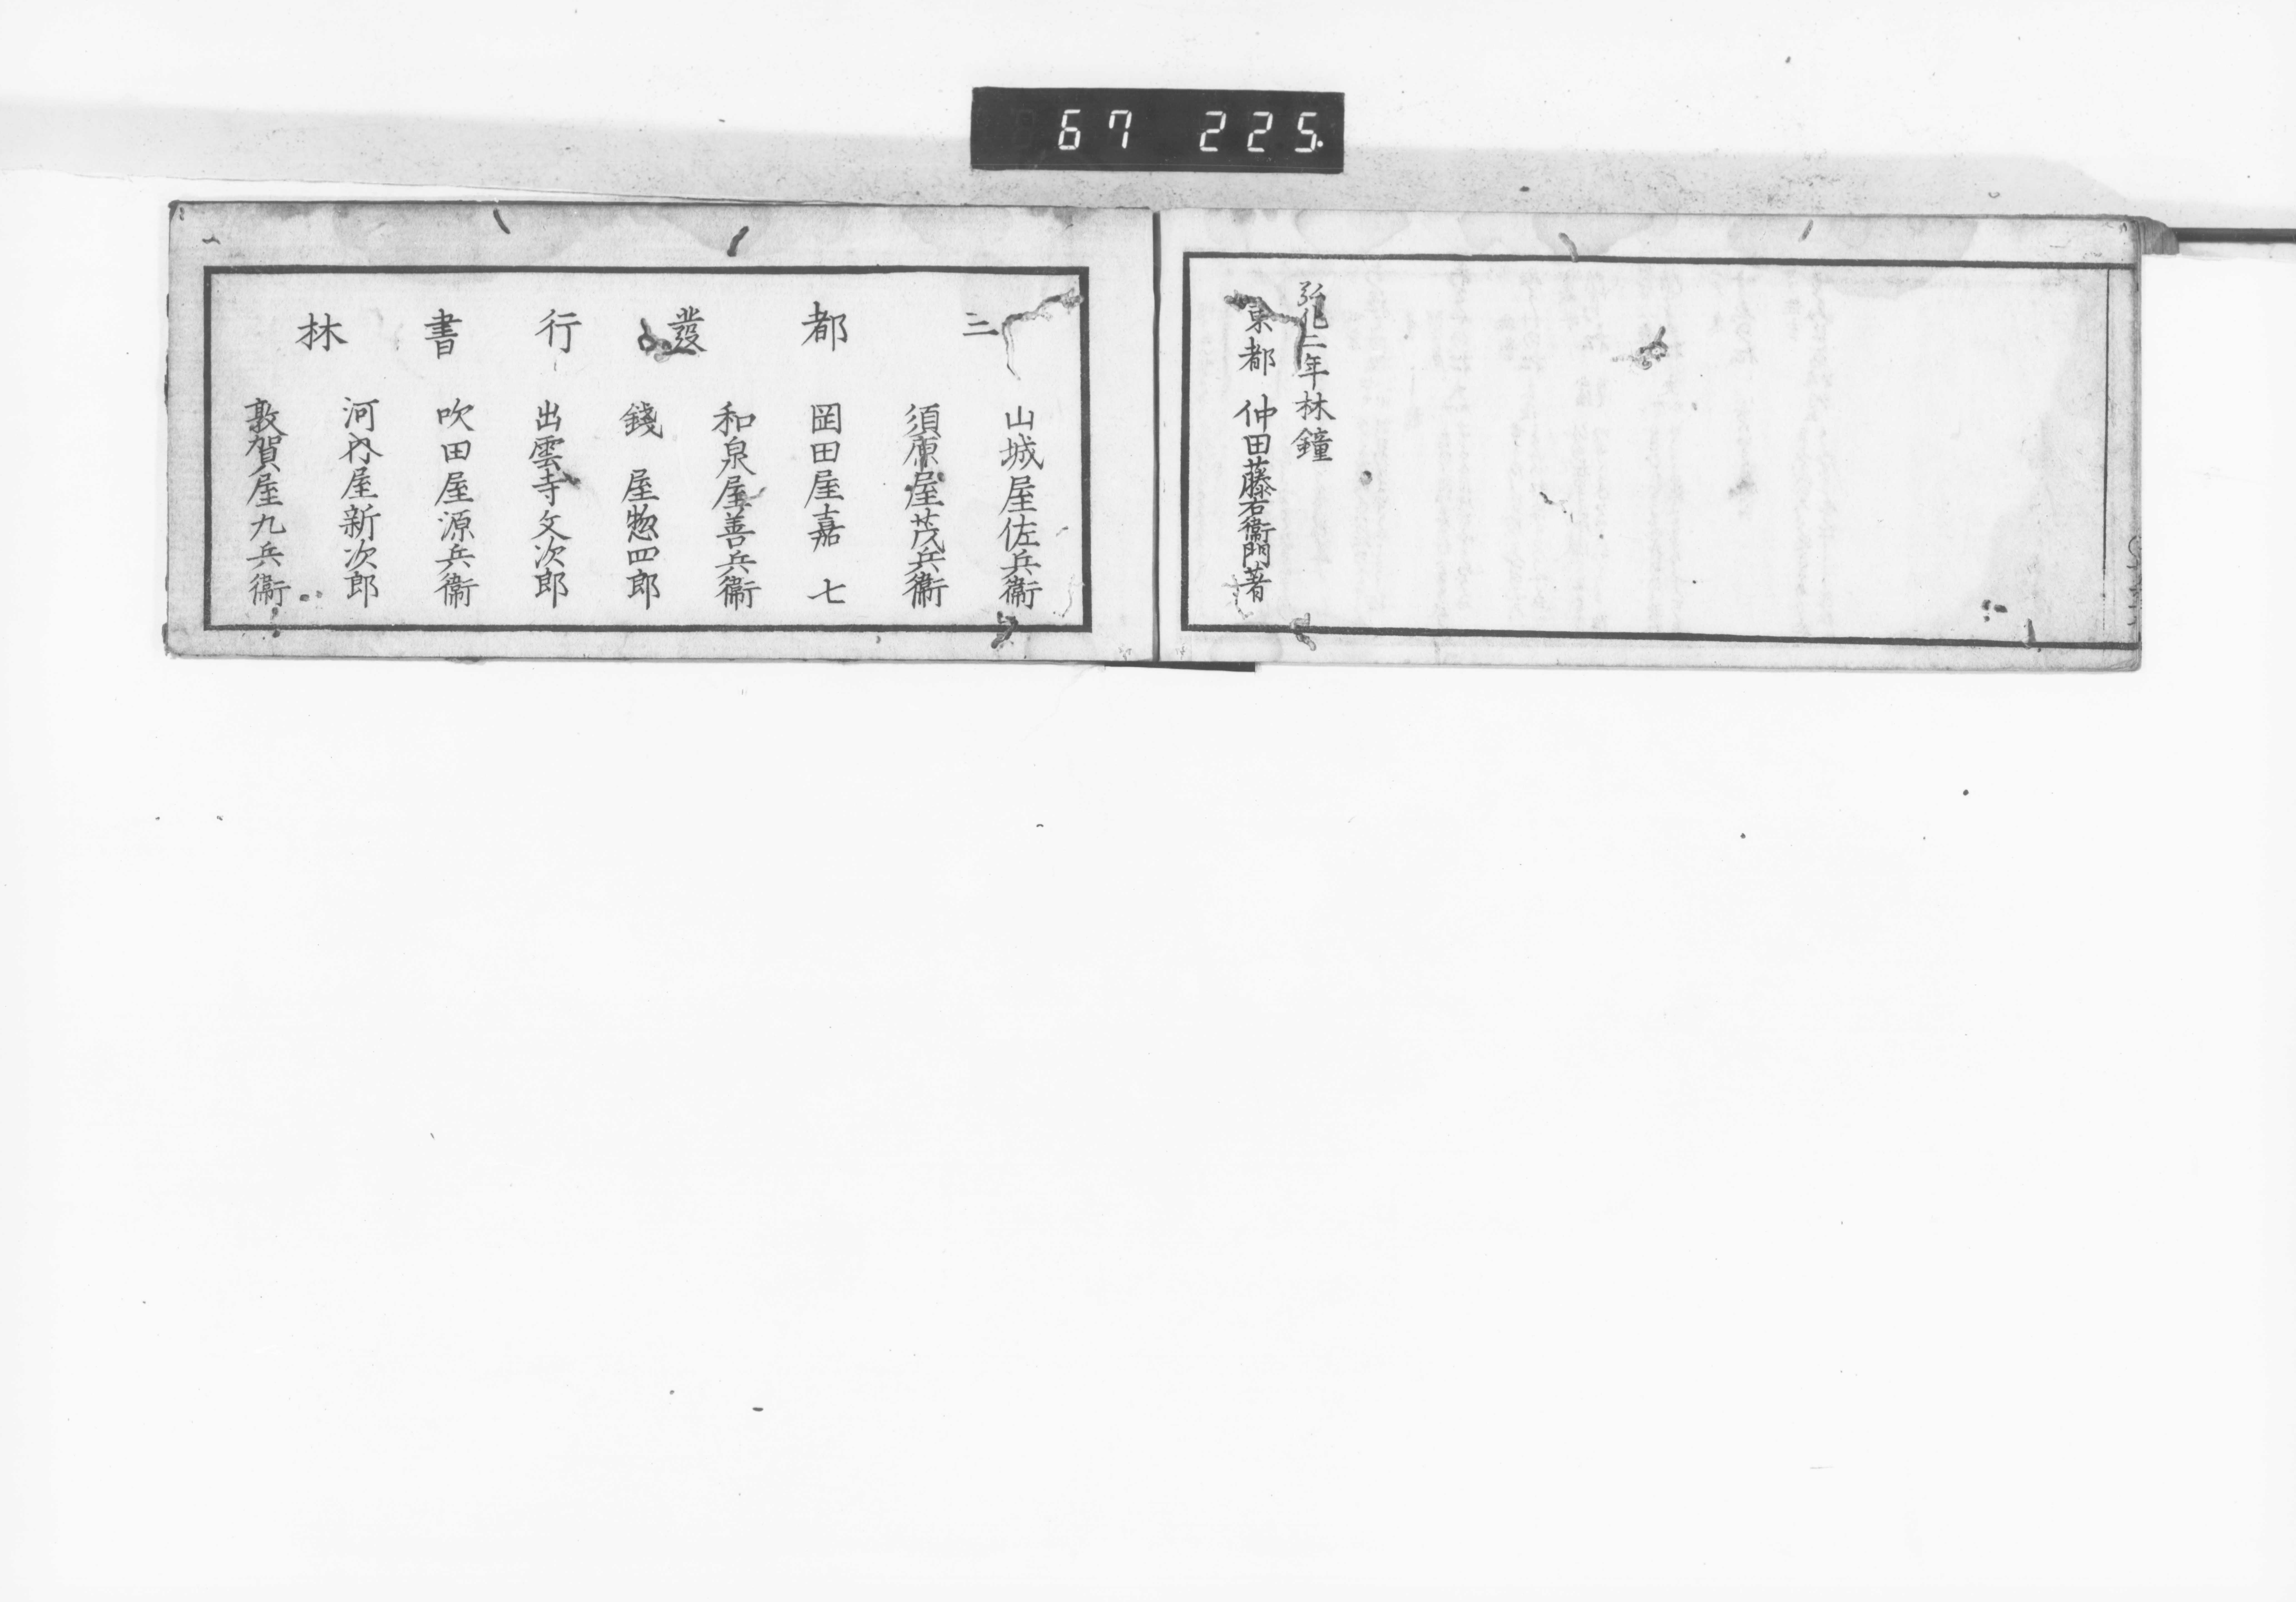 67 225
弘化二年林鐘
東都 仲田藤右衞門著
三都發行書林
山城屋佐兵衞
須原屋茂兵衞
岡田屋嘉七
和泉屋善兵衞
錢屋惣四郎
出雲寺文次郎
吹田屋源兵衞
河内屋新次郎
敦賀屋九兵衞